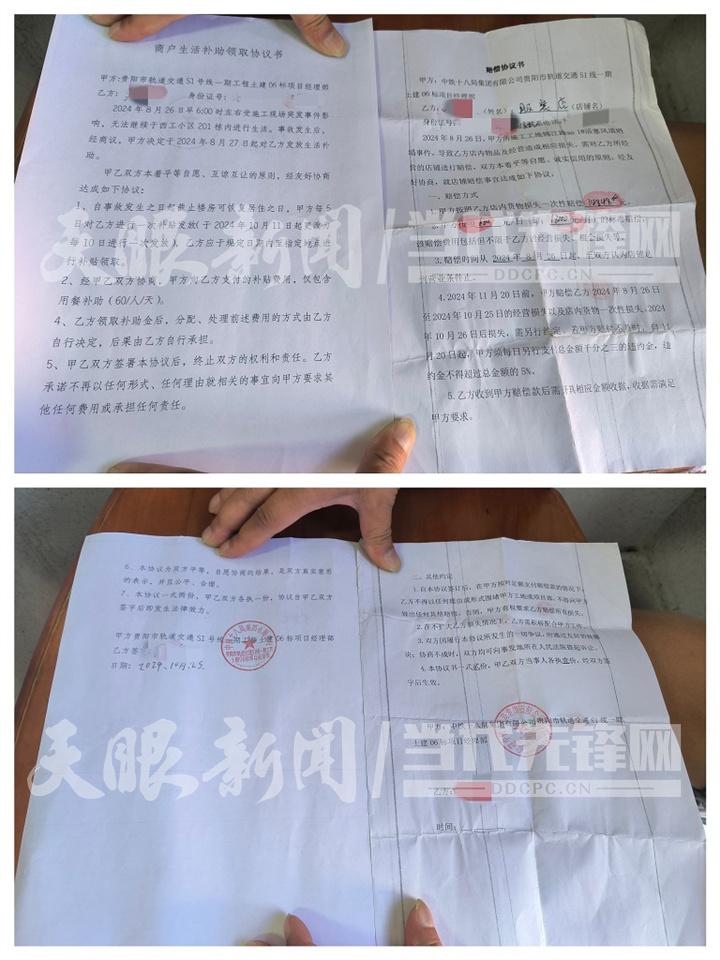 商户生活补助领取协议书
甲方:贵阳市轨道交通S1号线一期工程土建06标项目经理部
乙方: 身份证号:
2024年8月26日早6:00时左右受施工现场突发事件影
响,无法继续于西工小区201栋内进行生活。事故发生后,
经商议,甲方决定于2024年8月27起对乙方发放生活补
助。
甲乙双方本着平等自愿、互谅互让的原则,经友好协商
达成如下协议:
1、自事故发生之日起截止楼房可恢复居住之日,甲方每5
日对乙方进行一次补贴发放(于2024年10月11日起更改为
每10日进行一次发放)。乙方应于规定日期内至指定地点进
行补贴领取。
2、经甲乙双方协商,甲方向乙方支付的补贴费用,仅包含
用餐补助(60/人/天)。
4、乙方领取补助金后,分配、处理前述费用的方式由乙方
自行决定,后果由乙方自行承担。
5、甲乙双方签署本协议后,终止双方的权利和责任。乙方
承诺不再以任何形式、任何理由就相关的事宜向甲方要求其
他任何费用或承担任何责任。
赔偿协议书
甲方:中铁十八局集团有限公司贵阳市轨道交通S1线一期
土建06标项目经理部
乙方: (姓名): 服装店(店铺名)
身份证号:
2024年8月26日,甲方所施工工地
塌事件,导致乙方店内物品及经营造成相应损失,需对乙方所经
营的店铺进行赔偿,双方本着平等自愿、诚实信用的原则,经友
好协商,就店铺赔偿事宜达成如下协议。
一、赔偿方式
1.甲方按照乙方店内货物损失一次性赔偿 元。
2.甲方按 元/日(即: 元/月)的标准赔偿,
该赔偿费用包括但不限于乙方的经营损失、租金损失等。
3.赔偿时间从2024年8月26日起,至双方认为店铺
营业条件止。
4.2024年11月20日前,甲方赔偿乙方2024年8月26日
至2024年10月25日的经营损失以及店内货物一次性损失,2024
年10月26日后损失,需另行约定。若甲方赔偿不及时,自11
月20日起,甲方须每日另行支付总金额千分之三的违约金,违
约金不得超过总金额的5%。
5.乙方收到甲方赔偿款后需开具相应金额收据,收据需满足
甲方要求。
天眼新闻/当代先锋网
DDCPC.CN
6、本协议为双方平等、自愿协商的结果,是双方真实意思
的表示,并且公平、合理。
7、本协议一式两份,甲乙双方各执一份,协议自甲乙双方
签字后即发生法律效力。
甲方贵阳市轨道交通S1号线一期工程土建06标项目经理部
乙方签
日期:2024.10.25.
二、其他约定
1.自本协议签订后,在甲方按时足额支付赔偿款的情况下,
乙方不再以任何理由或形式围堵甲方工地或项目部、不得向甲方
做出任何其他赔偿,否则,甲方有权要求乙方赔偿所有损失。
2.在不扩大乙方损失情况下,乙方需积极配合甲方工作。
3.双方因履行本协议所发生的一切争议,则通过友好协商解
决;协商不成时,双方均可向事发地所在人民法院提起诉讼。
4.本协议书一式贰份,甲乙双方当事人各执壹份,经双方签
字后生效。
甲方:中铁十八局集团有限公司贵阳市轨道交通S1线一期
土建06标项目经理部
乙方:
时间:
天眼新闻/当代先锋网
DDCPC.CN